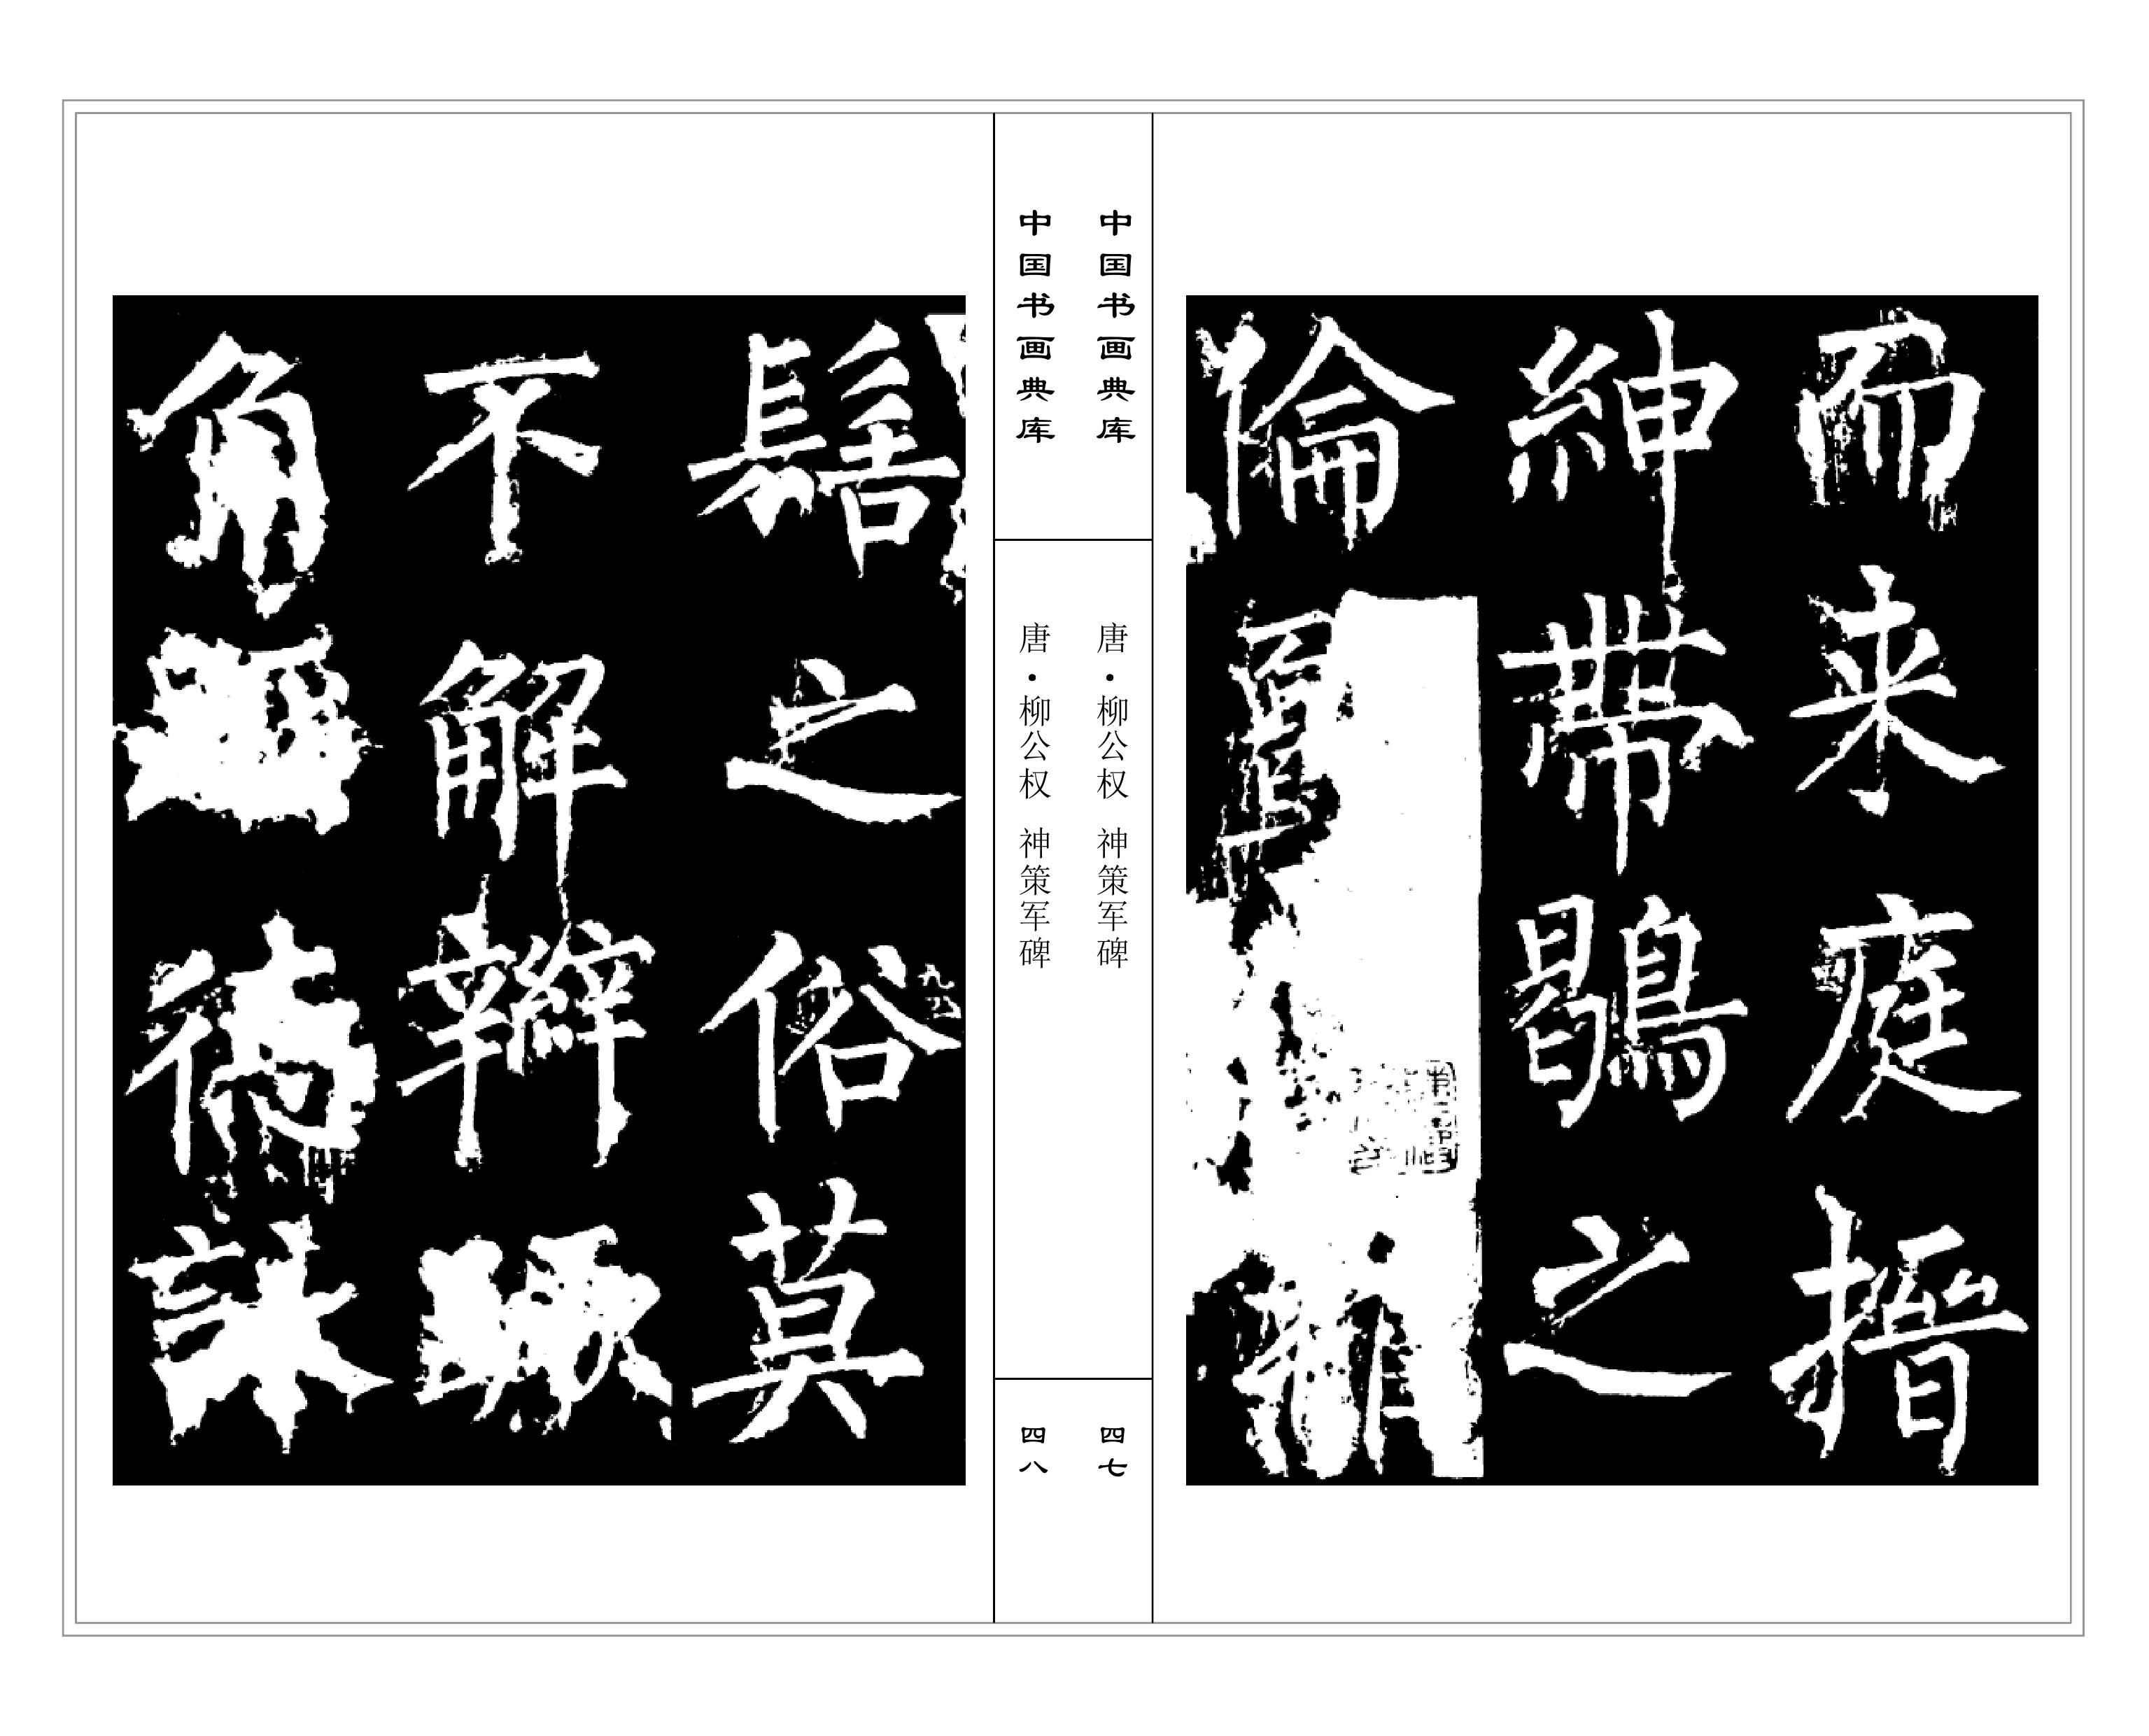 而来庭搢
紳帶鶡之
倫
中国书画典库
唐·柳公权 神策军碑
四七
中国书画典库
唐·柳公权 神策军碑
四八
鬍之俗莫
不解辮蹶
角
德